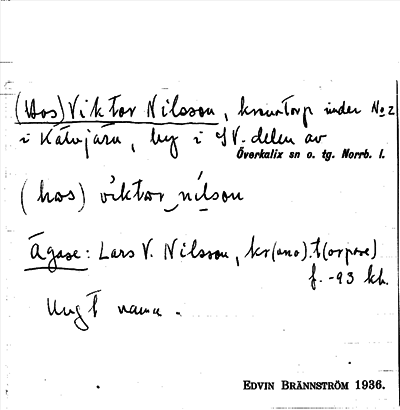 (Hos) Viktor Nilsson, kronotorp under No 2
i Kätujärv, by i SV. delen av
Överkalix sn o. tg. Norrb. l.
(hos) viktor nilson
Ägare: Lars V. Nilsson, kr(ono).t(orpare)
f. -93 kh.
Ungt namn.
EDVIN BRÄNNSTRÖM 1936.